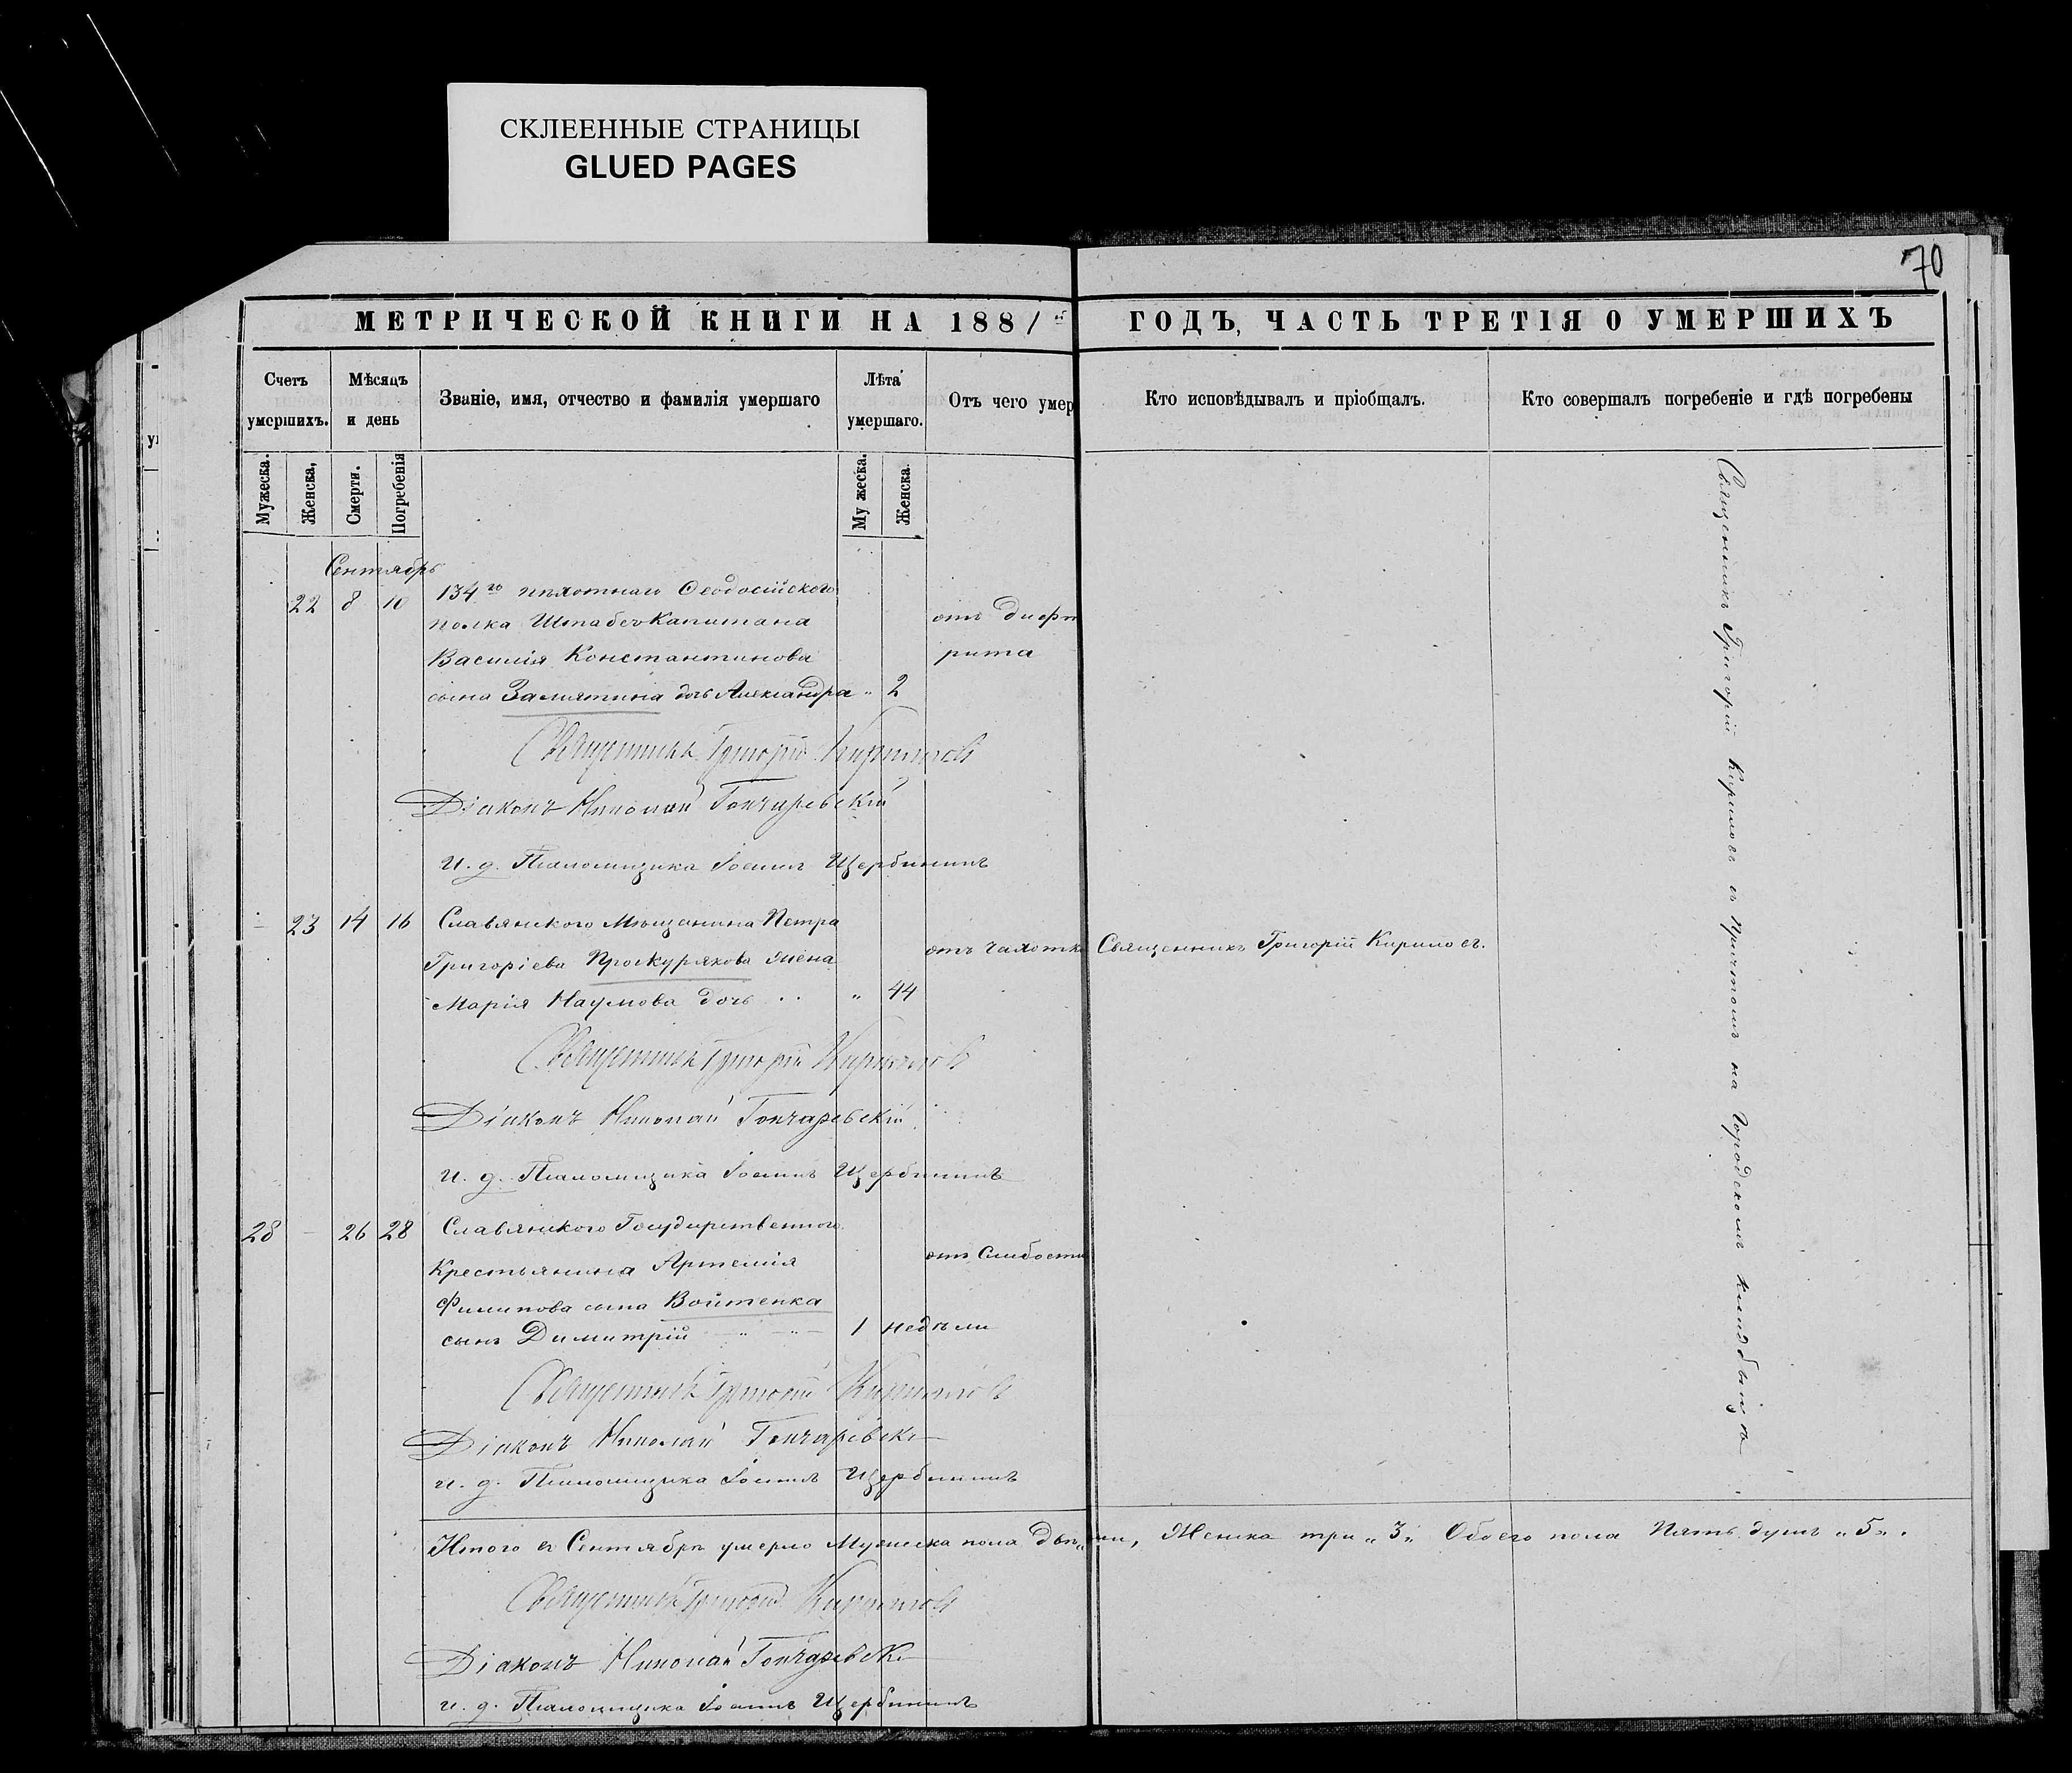 СКЛЕЕННЫЕ СТРАНИЦЫ
GLUED PAGES
70
МЕТРИЧЕСКОЙ КНИГИ НА 1881й ГОДЪ, ЧАСТЬ ТРЕТІЯ О УМЕРШИХЪ
Счетъ умершихъ.
Мѣсяцъ и день
Званіе, имя, отчество и фамилія умершаго
Лѣта умершаго.
Отъ чего умер
Кто исповѣдывалъ и пріобщалъ.
Кто совершалъ погребеніе и гдѣ погребены
Мужеска.
Женска,
Смерти.
Погребенія
Му жеска.
Женска.
Сентябрь
22 8 10 134го пѣхотнаго Ѳеодосійскаго
полка Штабсъ Капитана
отъ дифт
Василія Константинова
рита
сына Замятина дочь Александра " 2
Священникъ Григорій Кириловъ
Діаконъ Николай Гончаревскій
И. д. Псаломщика Іоаннъ Щербининъ
- 23 14 16 Славянского Мѣщанина Петра
Григоріева Проскурякова жена
отъ чахотки Священникъ Григорій Кириловъ.
Марія Наумова дочь . . " 44
Священникъ Григорій Кириловъ
Діаконъ Николай Гончаревскій
И. д. Псаломщика Іоаннъ Щербининъ
28 - 26 28 Славянского Государственного
Крестьянина Артемія
отъ Слабости
Филипова сына Войтенка
сынъ Димитрій 1 недѣли
Священникъ Григорій Кириловъ
Діаконъ Николай Гончаревск
и. д. Псаломщика Іоаннъ Щербининъ
Священникъ Григорій Кириловъ съ Причтомъ на Городскомъ кладбищѣ
Итого въ Сентябрѣ умерло Мужеска пола два, Женска три "3" Обоего пола Пять душъ "5".
Священникъ Григорій Кириловъ
Діаконъ Николай Гончаревск
и. д. Псаломщика Іоаннъ Щербининъ